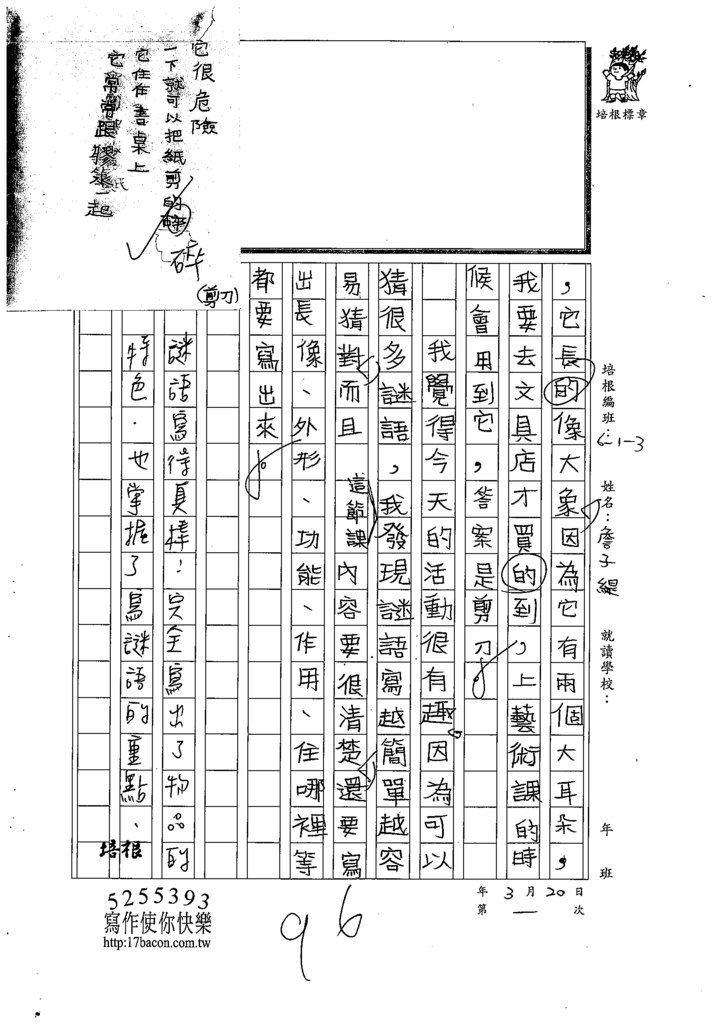 培根標章
培根編班：6-1-3
姓名：詹子緹
就讀學校：
年 班
，它長的像大象因為它有兩個大耳朵，
我要去文具店才買的到，上藝術課的時
候會用到它，答案是剪刀。
我覺得今天的活動很有趣。因為可以
猜很多謎語，我發現謎語寫越簡單越容
易猜對，而且這節課內容要很清楚，還要寫
出長像、外形、功能、作用、住哪裡等
都要寫出來。
謎語寫得真棒！完全寫出了物品的
特色．也掌握了寫謎語的重點、
培根
它很危險
一下就可以把紙剪的碎
碎
它住在書桌上
它常常跟膠一起
(剪刀)
年 3 月 20 日
第 一 次
96
5255393
寫作使你快樂
http:17bacon.com.tw